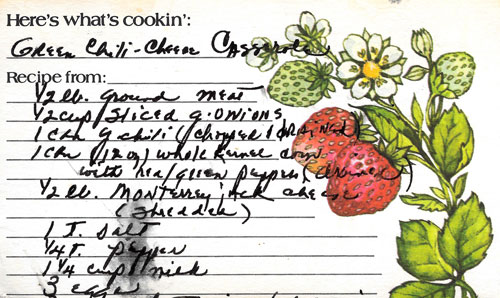 Here's what's cookin':
Green Chili-Cheese Casserole
Recipe from:
1/2 lb. ground meat
1/2 cup sliced g. onions
1 can g. chili (chopped & drained)
1 can (12 oz) whole kernel corn
with red/green peppers, drained
1/2 lb. Monterrey jack cheese
(shredded)
1 T. salt
1/4 t. pepper
1 1/4 cup milk
3 eggs